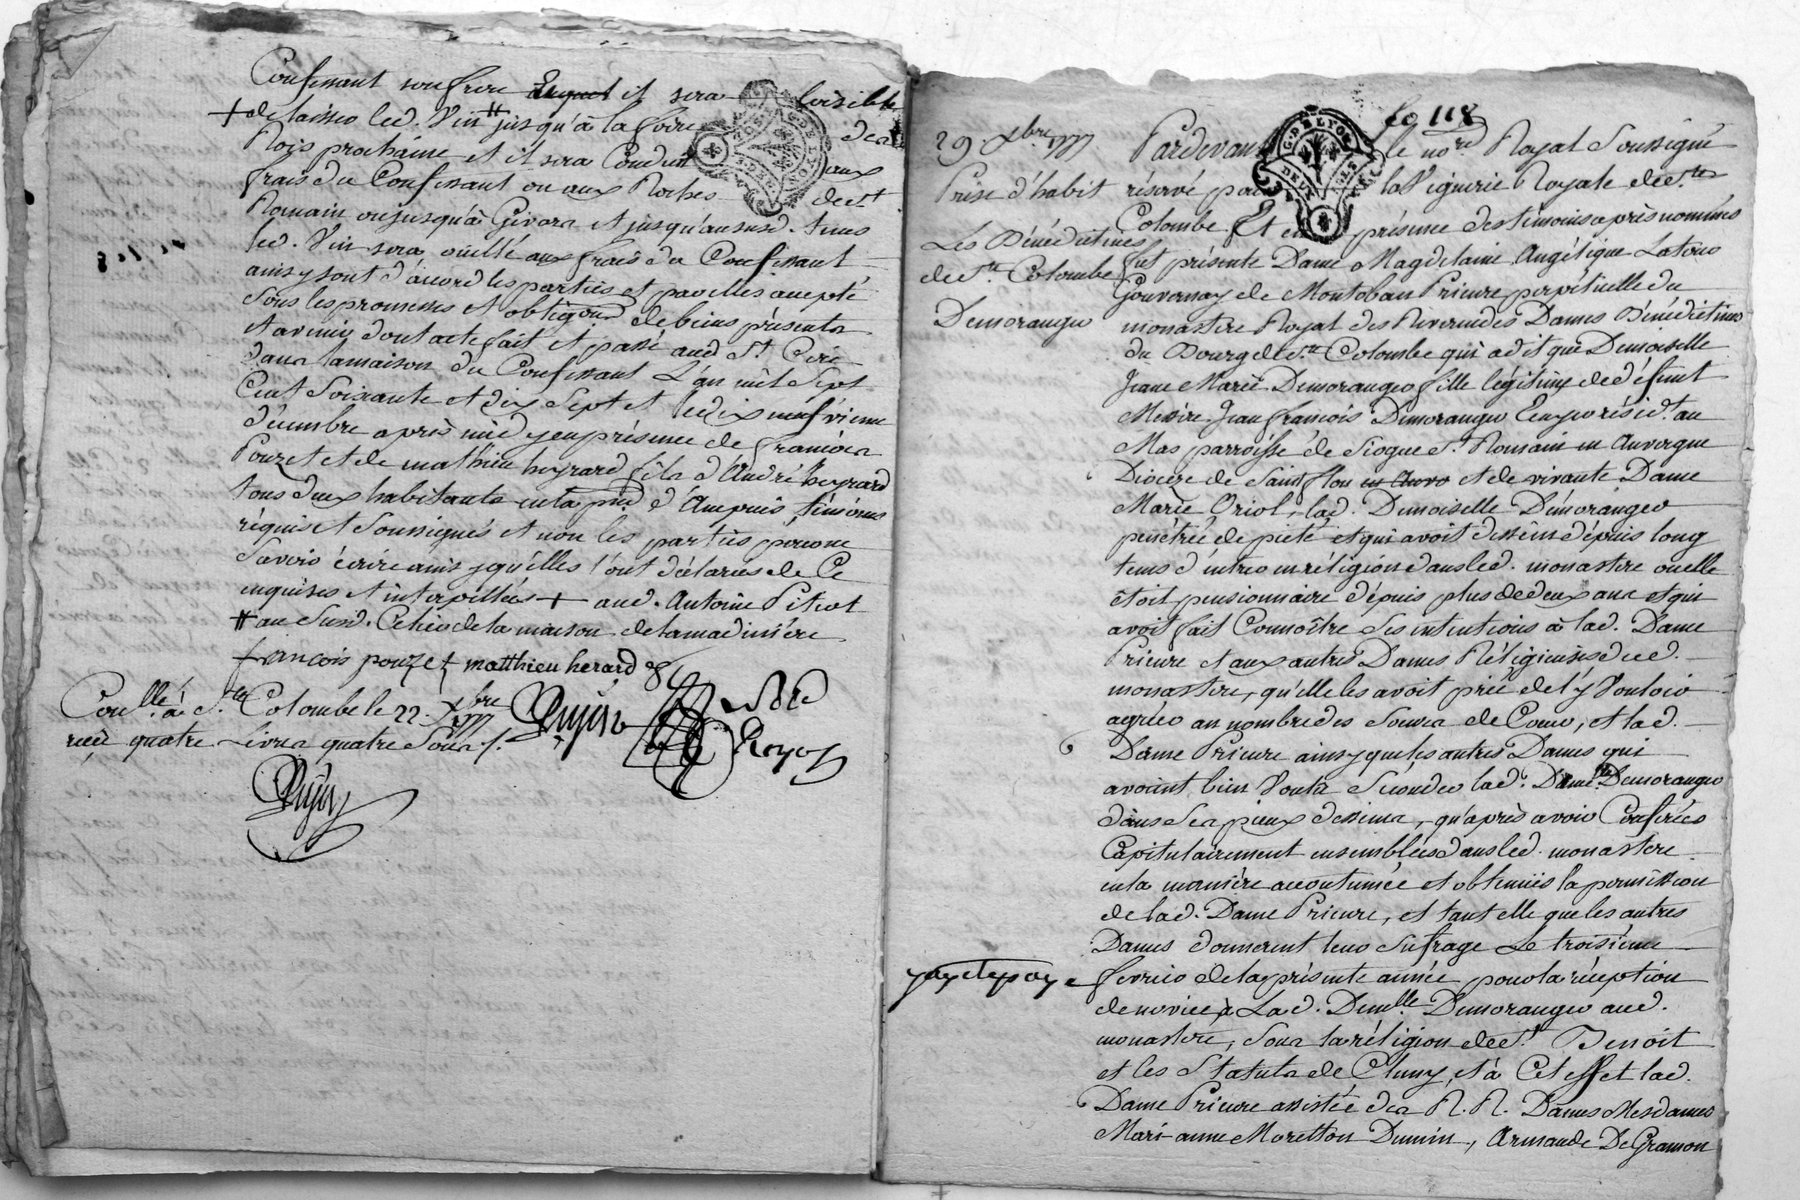 Confessant souffrira il sera loisible
+ de laisser led. Vin # jusqu'à la foire des
Rois prochaine et il sera Conduit aux
frais du Confessant ou aux Roches de st.
Romain ou jusqu'à Givors et jusqu'au susd. tems
led. Vin sera ouillé aux frais du Confessant
ainsy sont d'accord les parties et par elles accepté
sous les promesses et obligons de biens présents
et avenir dont acte fait et passé aud St. Cire
dans la maison du Confessant L'an mil Sept
Cent Soixante et dix Sept et le dix neufvieme
décembre après midy en présence de françois
Pouzet et de mathieu heyrard fils d'André heyrard
tous deux habitants en la d'Ampuis témoins
réquis et Soussignés et non les parties pour ne
Savoir écrire ainsy qu'elles l'ont déclarés de Ce
enquises et interpellées + aud. Antoine Pitiot
# au Susd. Célier de la maison de la madinière
françois pouzet matthieu herard
Conllé. à Ste Colombe le 22. Xbre 1777
reçu quatre Livres quatre Sous
fo 118
29 Xbre 1777
Prise d'habit
Les Bénédictines
de Ste Colombe
Demoranger
Pardevant le nore Royal Soussigné
réservé pour la Viguerie Royale de Ste
Colombe Et en présence des temoins après nommés
fut présente Dame Magdelaine Angélique Latour
Gouvernay de Montoban Prieure perpétuelle du
monastere Royal des Reverendes Dames Bénédictines
du Bourg de Ste Colombe qui a dit que Demoiselle
Jeane Marie Demoranger fille légitime de défunt
Messire Jean françois Demoranger Ecuyer résidt. au
Mas parroisse de Siogue St. Romain en Auvergne
Diocese de Saint flou en Auver et de vivante Dame
Marie Oriol, lad. Demoiselle Démoranger
penétrée de pieté et qui avoit dessein dépuis long
tems d'entrer en réligion dans led. monastere ou elle
étoit pensionnaire dépuis plus de deux ans et qui
avoit fait Connoître ses intentions à lad. Dame
Prieure et aux autres Dames Réligieuses dud.
monastere, qu'elle les avoit prié de l'y Vouloir
agréer au nombre des Soeurs de Coeur, et lad.
Dame Prieure ainsy que les autres Dames qui
avoient bien Voulu Séconder lad. Demlle Demoranger
dans Ses pieux desseins, qu'après avoir Conférées
Capitulairement ensemblées dans led. monastere
en la manière accoutumée et obtenües la permission
de lad. Dame Prieure, et tant elle que les autres
Dames donnerent leur Sufrage Le troisieme
fevrier de la présente année pour la réception
de novice à Lad. Demlle Demoranger aud.
monastere, Sous la réligion de St. Benoit
et les Statuts de Cluny, et à Cet effet lad.
Dame Prieure assistée des R. R. Dames Mesdames
Mari-anne Moretton Dumein, Armande De Gramon